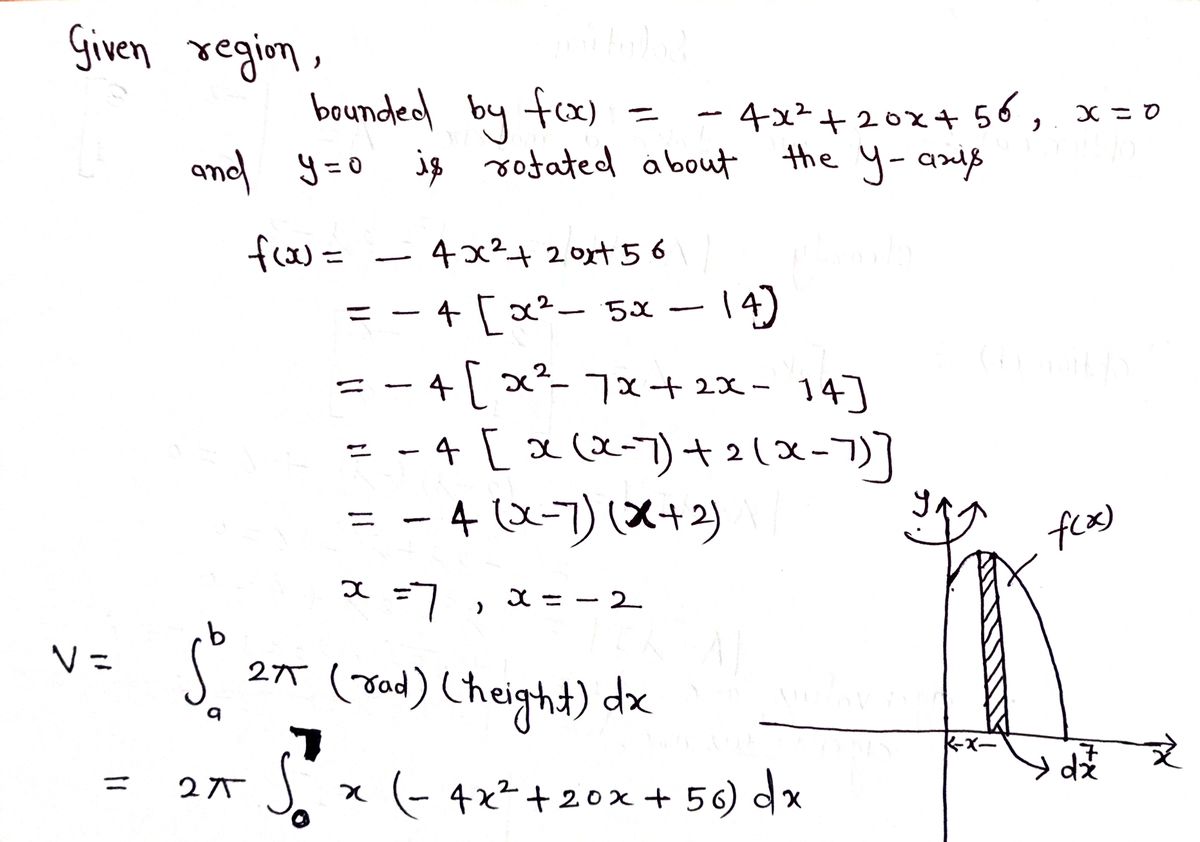 Given region,
bounded by f(x) = - 4x² + 20x + 56, x = 0
and y=0 is rotated about the y-axis
f(x) = - 4x² + 20x + 56
= - 4 [ x² - 5x - 14 ]
= - 4 [ x² - 7x + 2x - 14 ]
= - 4 [ x (x-7) + 2 (x-7) ]
= - 4 (x-7) (x+2)
x = 7 , x = -2
V = ∫ₐᵇ 2π (rad) (height) dx
= 2π ∫₀⁷ x (- 4x² + 20x + 56) dx
y
f(x)
x
7
dx
x